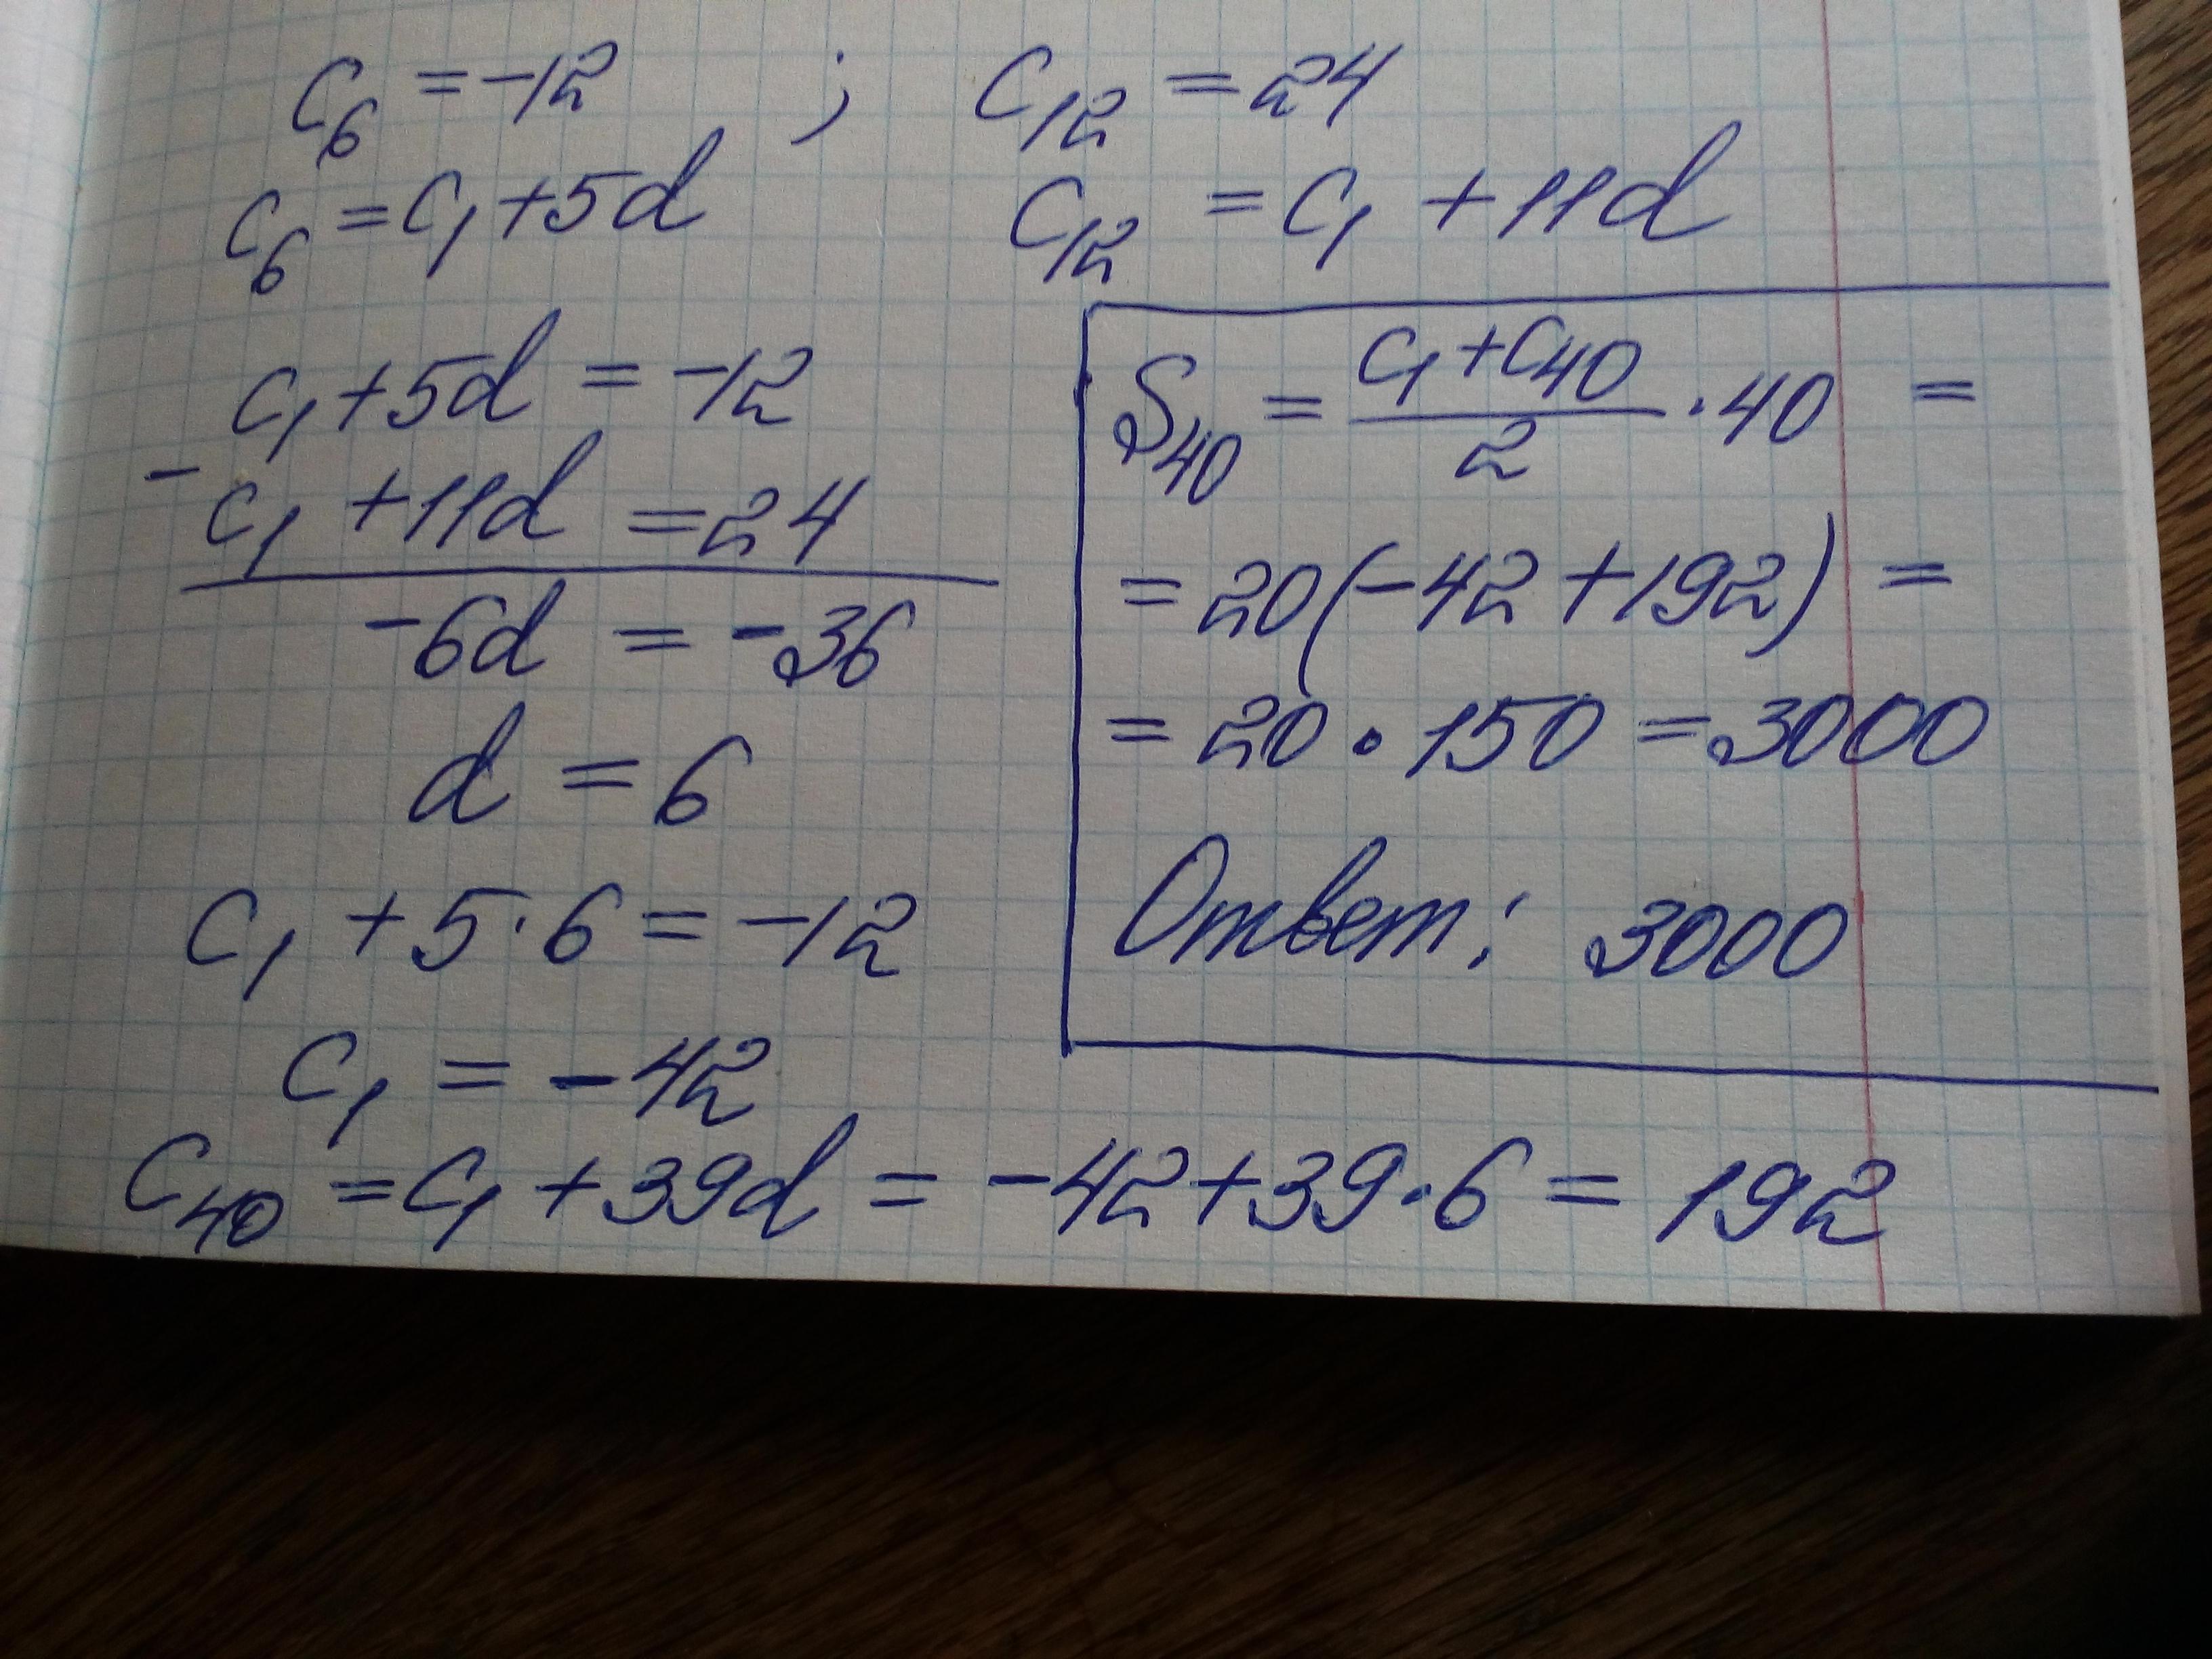 c₆ = -12 ; c₁₂ = 24
c₆ = c₁ + 5d c₁₂ = c₁ + 11d
c₁ + 5d = -12
-
c₁ + 11d = 24
-6d = -36
d = 6
c₁ + 5·6 = -12
c₁ = -42
c₄₀ = c₁ + 39d = -42 + 39·6 = 192
S₄₀ = (c₁ + c₄₀)/2 · 40 =
= 20(-42 + 192) =
= 20 · 150 = 3000
Ответ: 3000